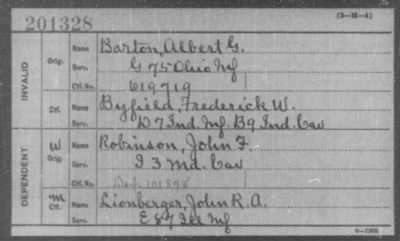 201328 (3-16-4)
INVALID
Orig. Name Barton, Albert G.
Serv. G 75 Ohio Inf
Ctf. No. 619719
Ctf. Name Byfield, Frederick W.
Serv. D 7 Ind. Inf. B 9 Ind. Cav
DEPENDENT
W Orig. Name Robinson, John F.
Serv. I 3 Ind. Cav
Ctf. No. 101898
M Ctf. Name Lionberger, John R. A.
Serv. E 87 Ill Inf